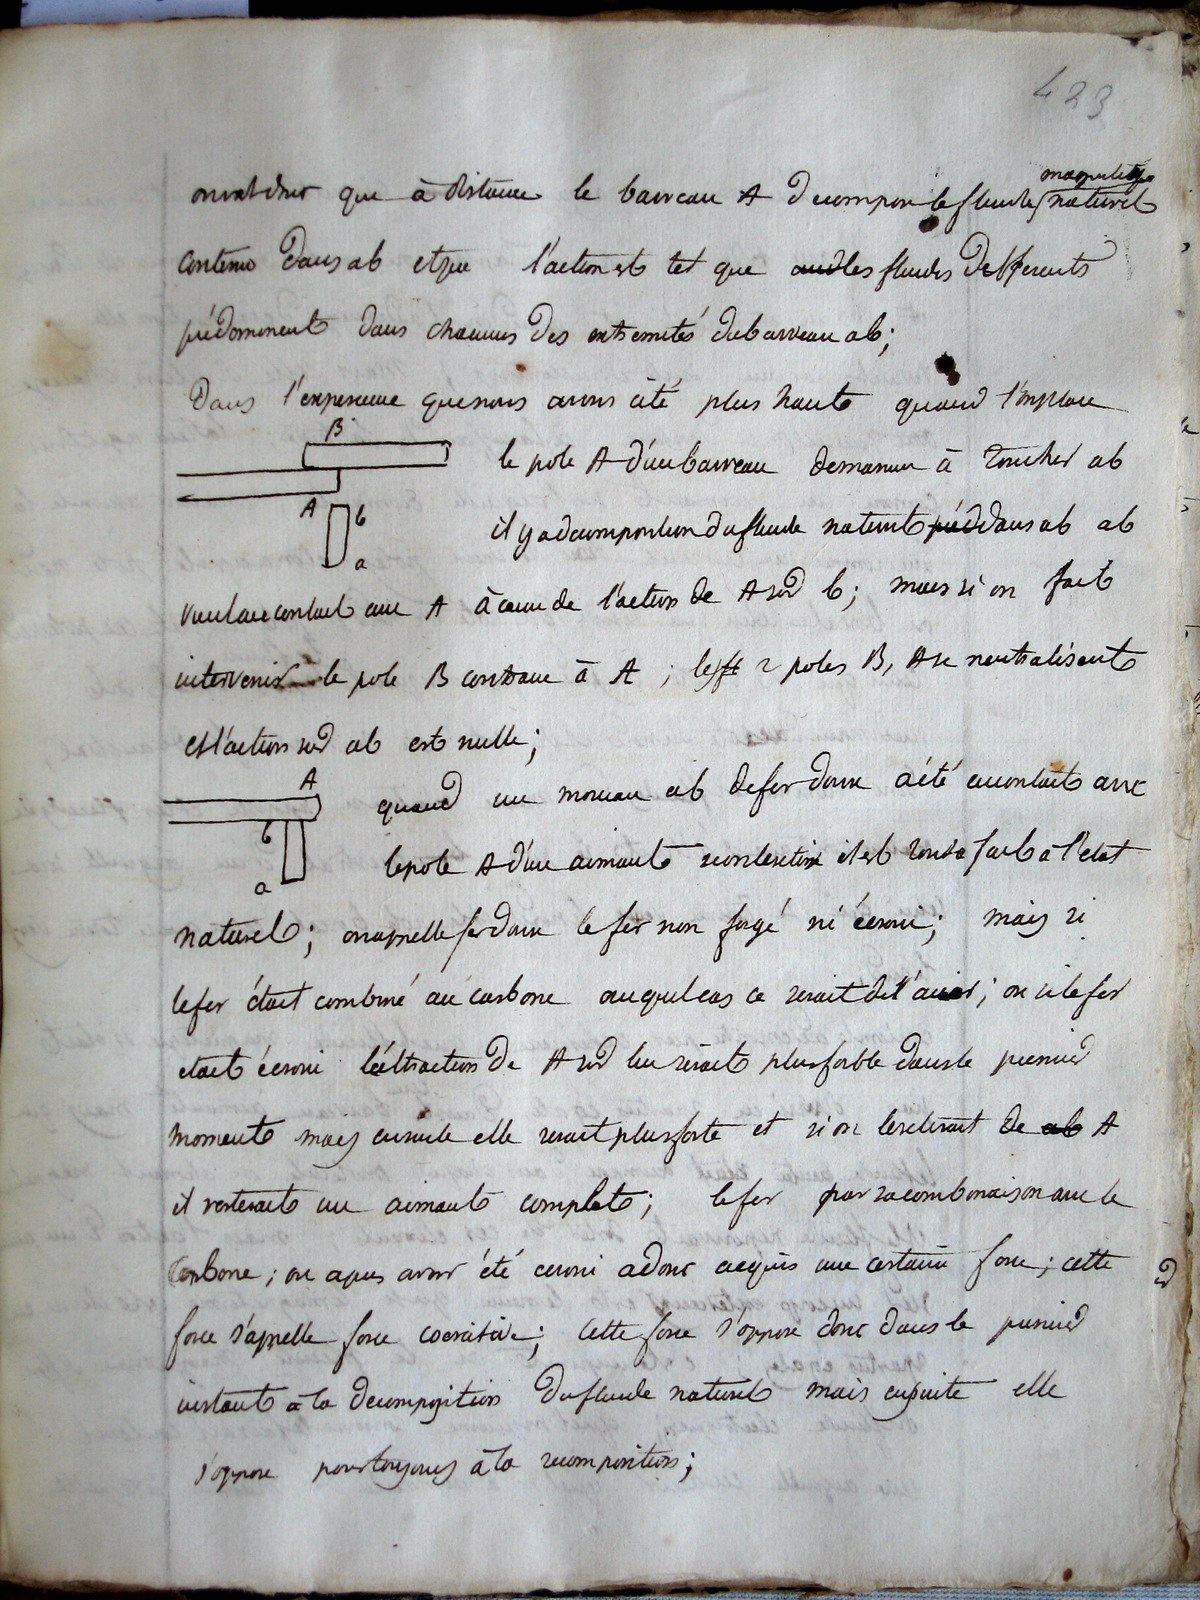 423
magnétique
que à distance le barreau A décompose le fluide naturel
contenu dans ab et que l'action est tel que les fluides différents
prédominent dans chacunes des extremités du barreau ab;
Dans l'experience que nous avons cité plus haut quand l'on place
B
le pole A d'un barreau de maniere à toucher ab
A b
il y a decomposition du fluide naturel dans ab ab
a
contact avec A à cause de l'action de A sur b; mais si on fait
intervenir le pole B contraire à A, les 2 poles B, A se neutralisent
et l'action sur ab est nulle;
A
quand un morceau ab de fer doux a été en contact avec
b
le pole A d'un aimant si on le retire il est tout a fait à l'état
a
naturel; on appelle fer doux le fer non forgé ni écroui; mais si
le fer était combiné au carbone auquel cas ce serait de l'acier; ou si le fer
etait écroui l'attraction de A sur lui serait plus faible dans le premier
moment mais ensuite elle serait plus forte et si on le retirait de ab A
il resterait un aimant complet; le fer par sa combinaison avec le
Carbone; ou apres avoir été écroui a donc acquis une certaine force; cette
force s'appelle force coercitive; Cette force s'oppose donc dans le premier
instant à la decomposition du fluide naturel mais ensuite elle
s'oppose pour toujours à la recomposition;